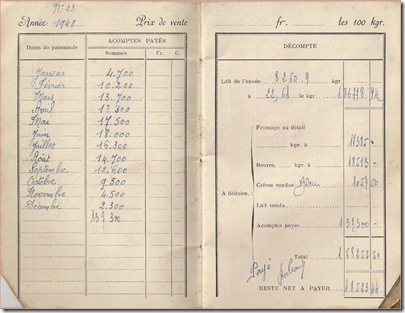 N° 23
Année 1948 Prix de vente
Dates de paiements
ACOMPTES PAYÉS
Sommes Fr. C.
Janvier 4.700
Février 10.200
Mars 13.700
Avril 13.300
Mai 17.500
Juin 18.000
Juillet 16.300
Août 14.700
Septembre 12.600
Octobre 9.500
Novembre 4.500
Décembre 2.300
137.300
fr. les 100 kgr.
DÉCOMPTE
Lait de l'année 8260.9 kgr.
à 22,61 le kgr. 186778 94
A déduire.
Fromage au détail
kgr. à 11385 -
Beurre, kgr. à 18513 -
Crème vendue 1057 50
Lait vendu
Acomptes payés 137300 -
Total 168255 50
Payé
RESTE NET A PAYER 18523 44